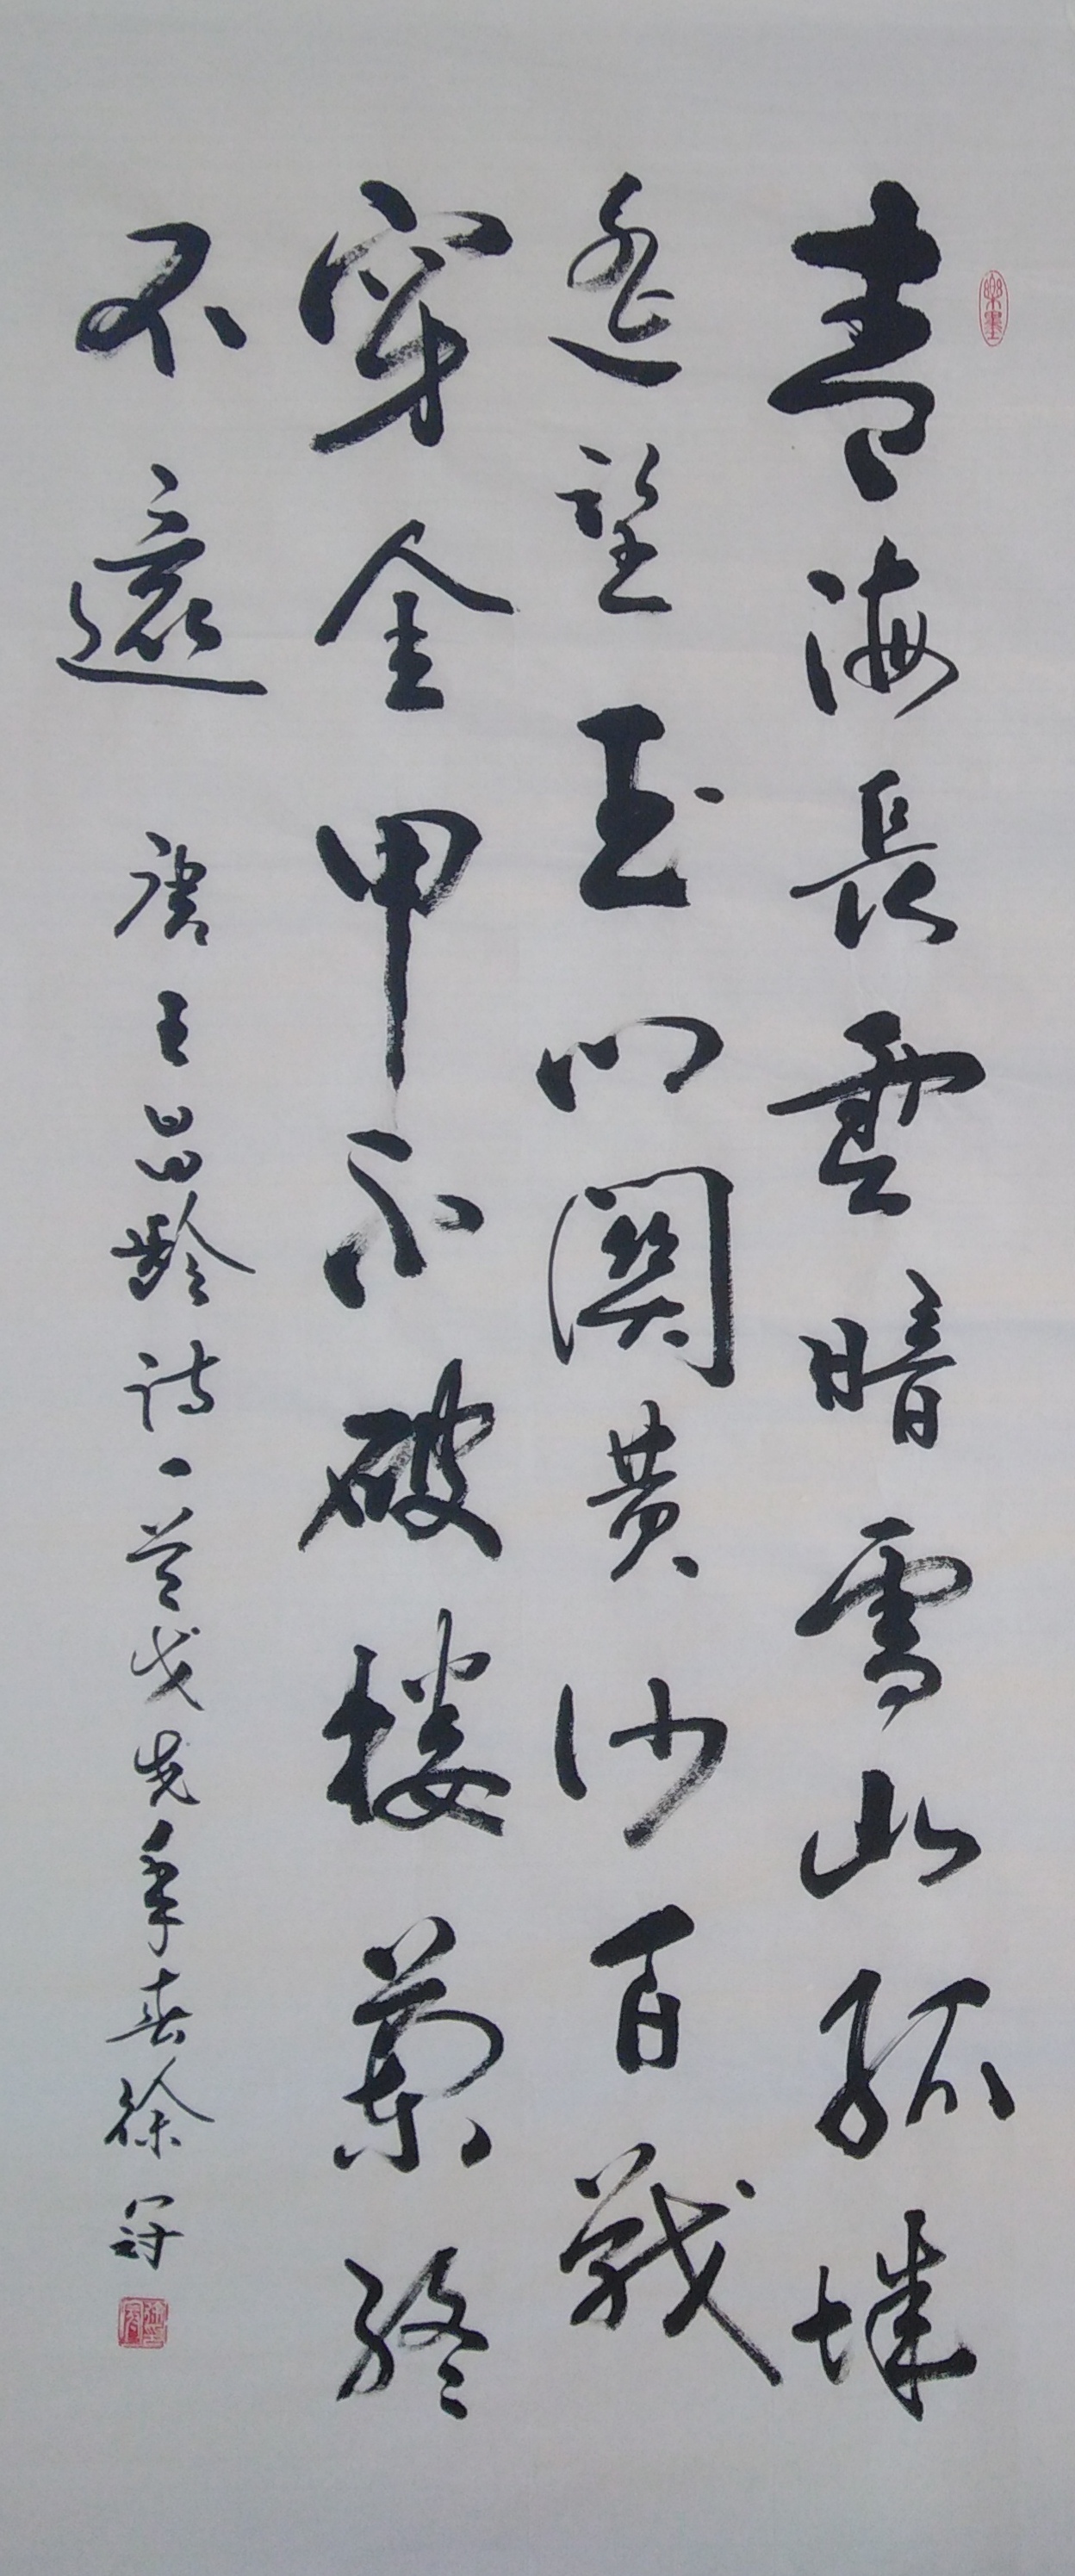 樂墨
青海長雲暗雪山孤城
遙望玉門關黄沙百戰
穿金甲不破樓蘭終
不還
唐王昌齡詩一首年春徐